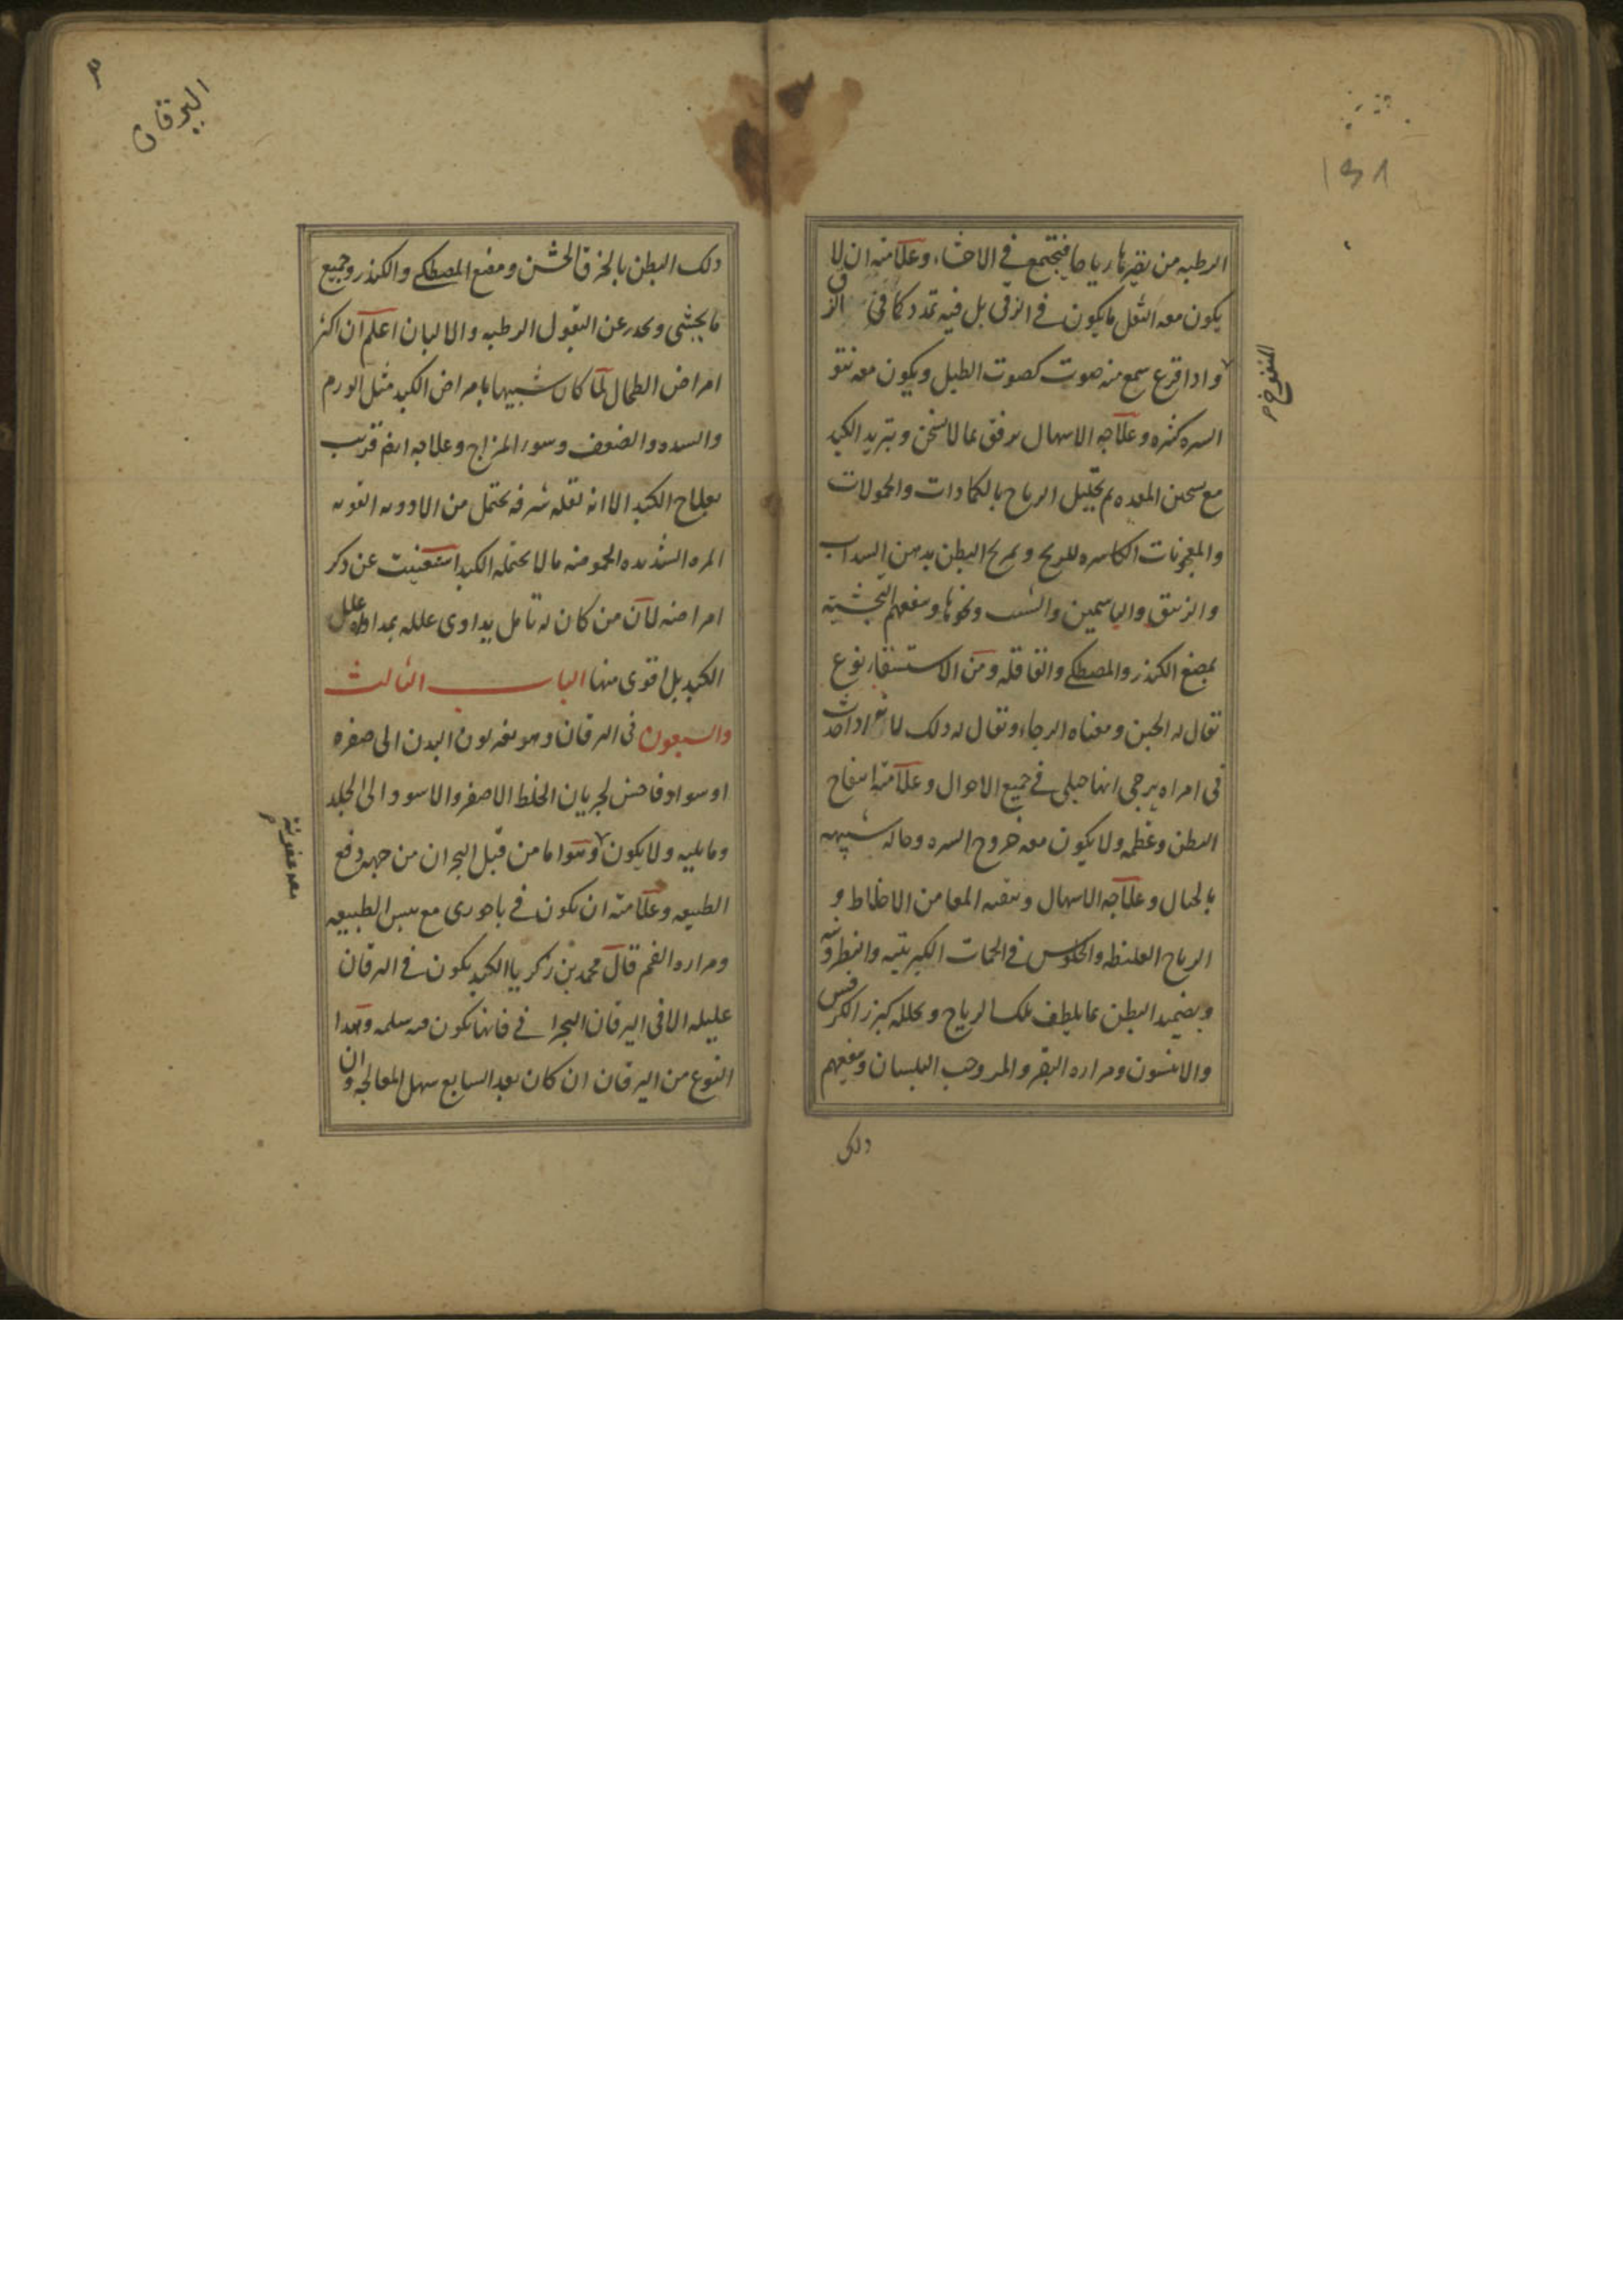 ١٥١
الرطبه من يصيرها رياحا فيجتمع في الاحشاء وعلامته ان لا
يكون معه الثقل ما يكون في الزقى بل فيه تمدد كما في الزق
المنفوخ
واذا قرع سمع منه صوت كصوت الطبل ويكون معه نتو
السره كثره وعلاجه الاسهال برفق بما لا يسخن وتبريد الكبد
مع تسخين المعده ثم تحليل الرياح بالكمادات والحمولات
والمعجونات الكاسره للريح وتمريخ البطن بدهن السداب
والزنبق والياسمين والشبت ونحوها وينفعهم التجشيه
بمضغ الكندر والمصطكى والقاقله ومن الاستسقاء نوع
يقال له الحبن ومعناه الرجاء ويقال له ذلك لانه اذا حدث
في امراه يرجى انها حبلى في جميع الاحوال وعلامته انتفاخ
البطن وعظمه ولا يكون معه خروج السره وحاله شبيهه
بالحبال وعلاجه الاسهال وتنقيه المعا من الاخلاط و
الرياح الغليظه والجلوس في الحمات الكبريتيه والنطرونيه
وبضميد البطن بما يلطف تلك الرياح ويحلله كبزر الكرفس
والانيسون ومراره البقر والمر وحب البلسان وينفعهم
دلك
اليرقان
دلك البطن بالخرق الخشن ومضغ المصطكى والكندر وجميع
ما يجشى ويحذر عن البقول الرطبه والالبان اعلم ان اكثر
امراض الطحال لما كان شبيها بامراض الكبد مثل الورم
والسده والضعف وسوء المزاج وعلاجه ايضا قريب
بعلاج الكبد الا انه لقله شرفه يحتمل من الادويه القويه
المره الشديده الحموضه ما لا يحتمله الكبد استغنيت عن ذكر
امراضه لان من كان له تامل يداوى علله بمداواه علل
الكبد بل اقوى منها الباب الثالث
والسبعون في اليرقان وهو تغير لون البدن الى صفره
او سواد فاحش لجريان الخلط الاصفر والاسود الى الجلد
وما يليه ولا يكون وتتولد اما من قبل البحران من جهه دفع
معه عفونة
الطبيعه وعلامته ان يكون في باحورى مع يبس الطبيعه
ومراره الفم قال محمد بن زكريا الكبد يكون في اليرقان
عليله الا في اليرقان البحرانى فانها تكون فيه سليمه وهذا
النوع من اليرقان ان كان بعد السابع سهل المعالجه وان